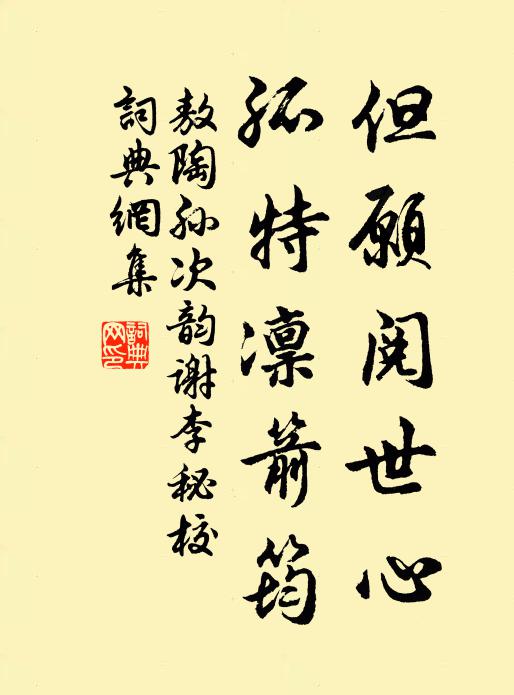 但願閱世心
孤特凜箭筠
敖陶孫次韵謝李秘校
詞典網集
詞典網印